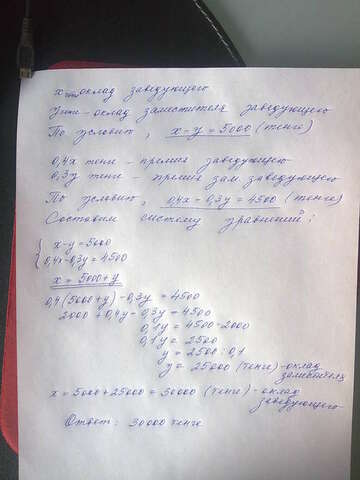 x тенге оклад заведующего
y тенге - оклад заместителя заведующего
По условию, x - y = 5000 (тенге)
0,4x тенге - премия заведующего
0,3y тенге - премия зам. заведующего
По условию, 0,4x - 0,3y = 4500 (тенге)
Составим систему уравнений:
{ x - y = 5000
0,4x - 0,3y = 4500
x = 5000 + y
0,4(5000 + y) - 0,3y = 4500
2000 + 0,4y - 0,3y = 4500
0,1y = 4500 - 2000
0,1y = 2500
y = 2500 : 0,1
y = 25000 (тенге) - оклад
заместителя
x = 5000 + 25000 = 30000 (тенге) - оклад
заведующего
Ответ: 30000 тенге